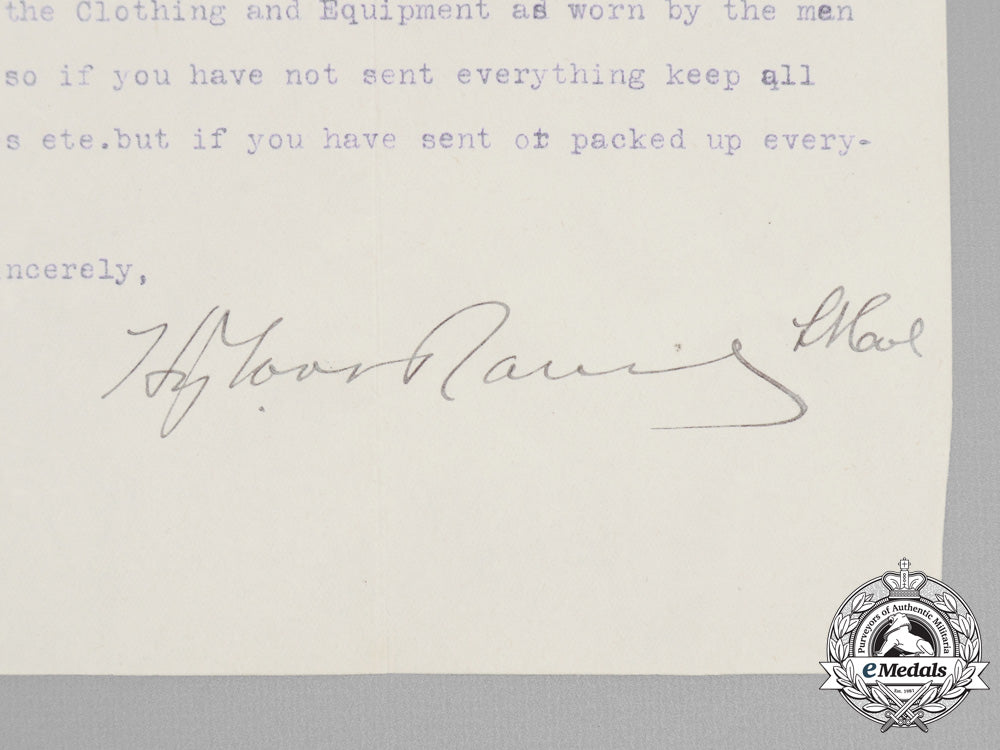 the Clothing and Equipment as worn by the men
so if you have not sent everything keep all
s ete.but if you have sent or packed up every-
ncerely,
Purveyors of Authentic Militaria
eMedals
Est. 1981